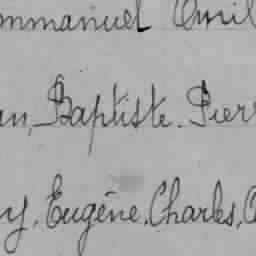 mmanuel Emil
an, Baptiste. Pierr
y, Eugène, Charles,